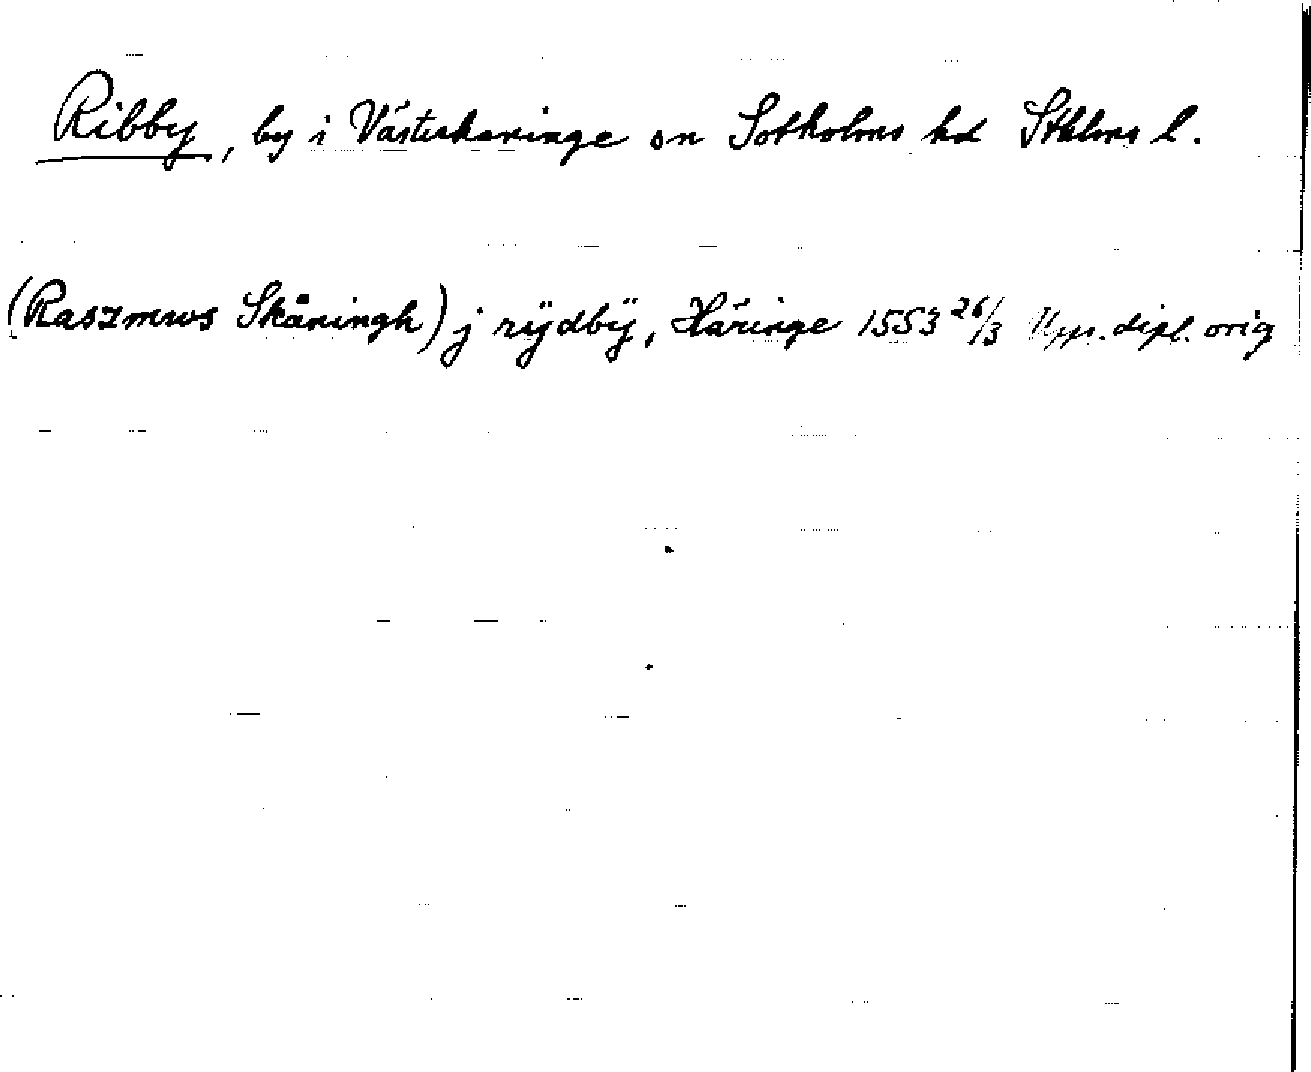 Ribby, by i Västerhaninge sn Sotholms hd Sthlms l.
(Raszmws Skåningh) j rÿdbÿ, Häringe 1553 26/3 Upps. dipl. orig